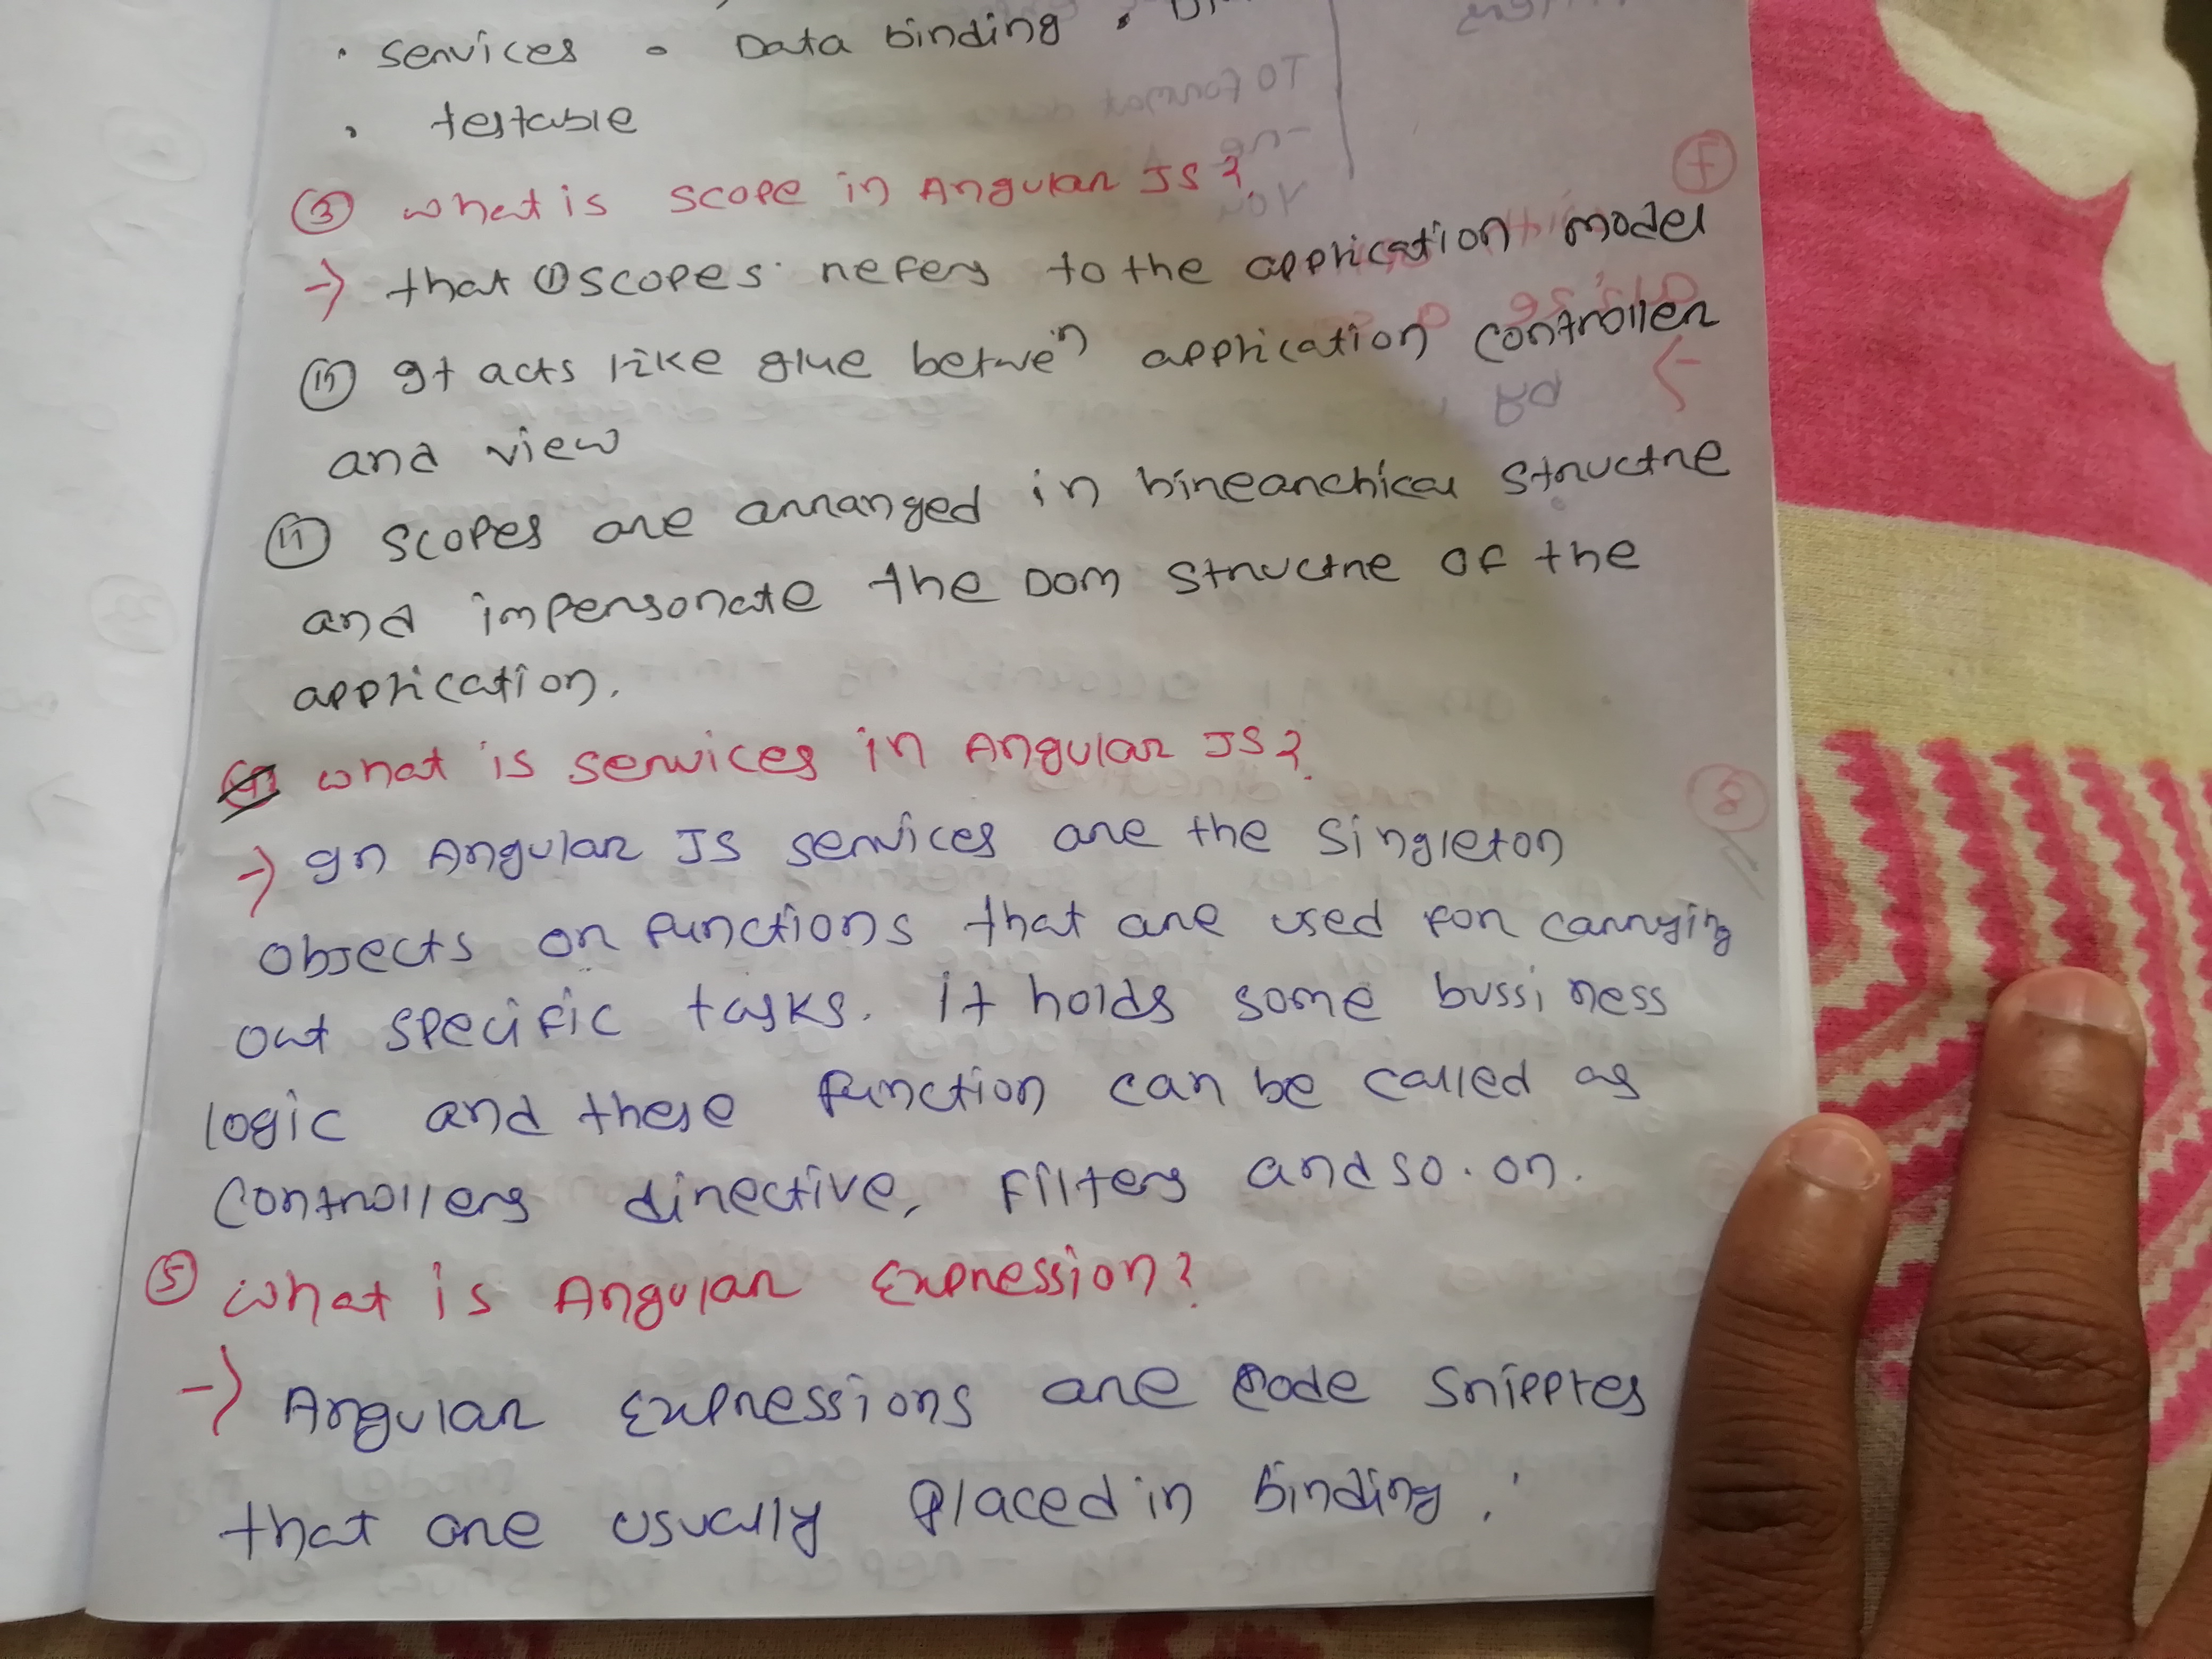 • services • Data binding •
• testable
③ what is scope in Angular JS?
→ that ① scopes refers to the application model
⑪ It acts like glue betwen application controller
and view
⑪ scopes are arranged in hirearchical structre
and impersonate the DOM structre of the
application.
④ what is services in Angular JS?
→ In Angular JS services are the singleton
objects or functions that are used for carrying
out specific tasks. it holds some bussiness
logic and these function can be called as
controllers directive, filters and so. on.
⑤ what is Angular Expression?
→ Angular Expressions are code snipptes
that are usually placed in binding.